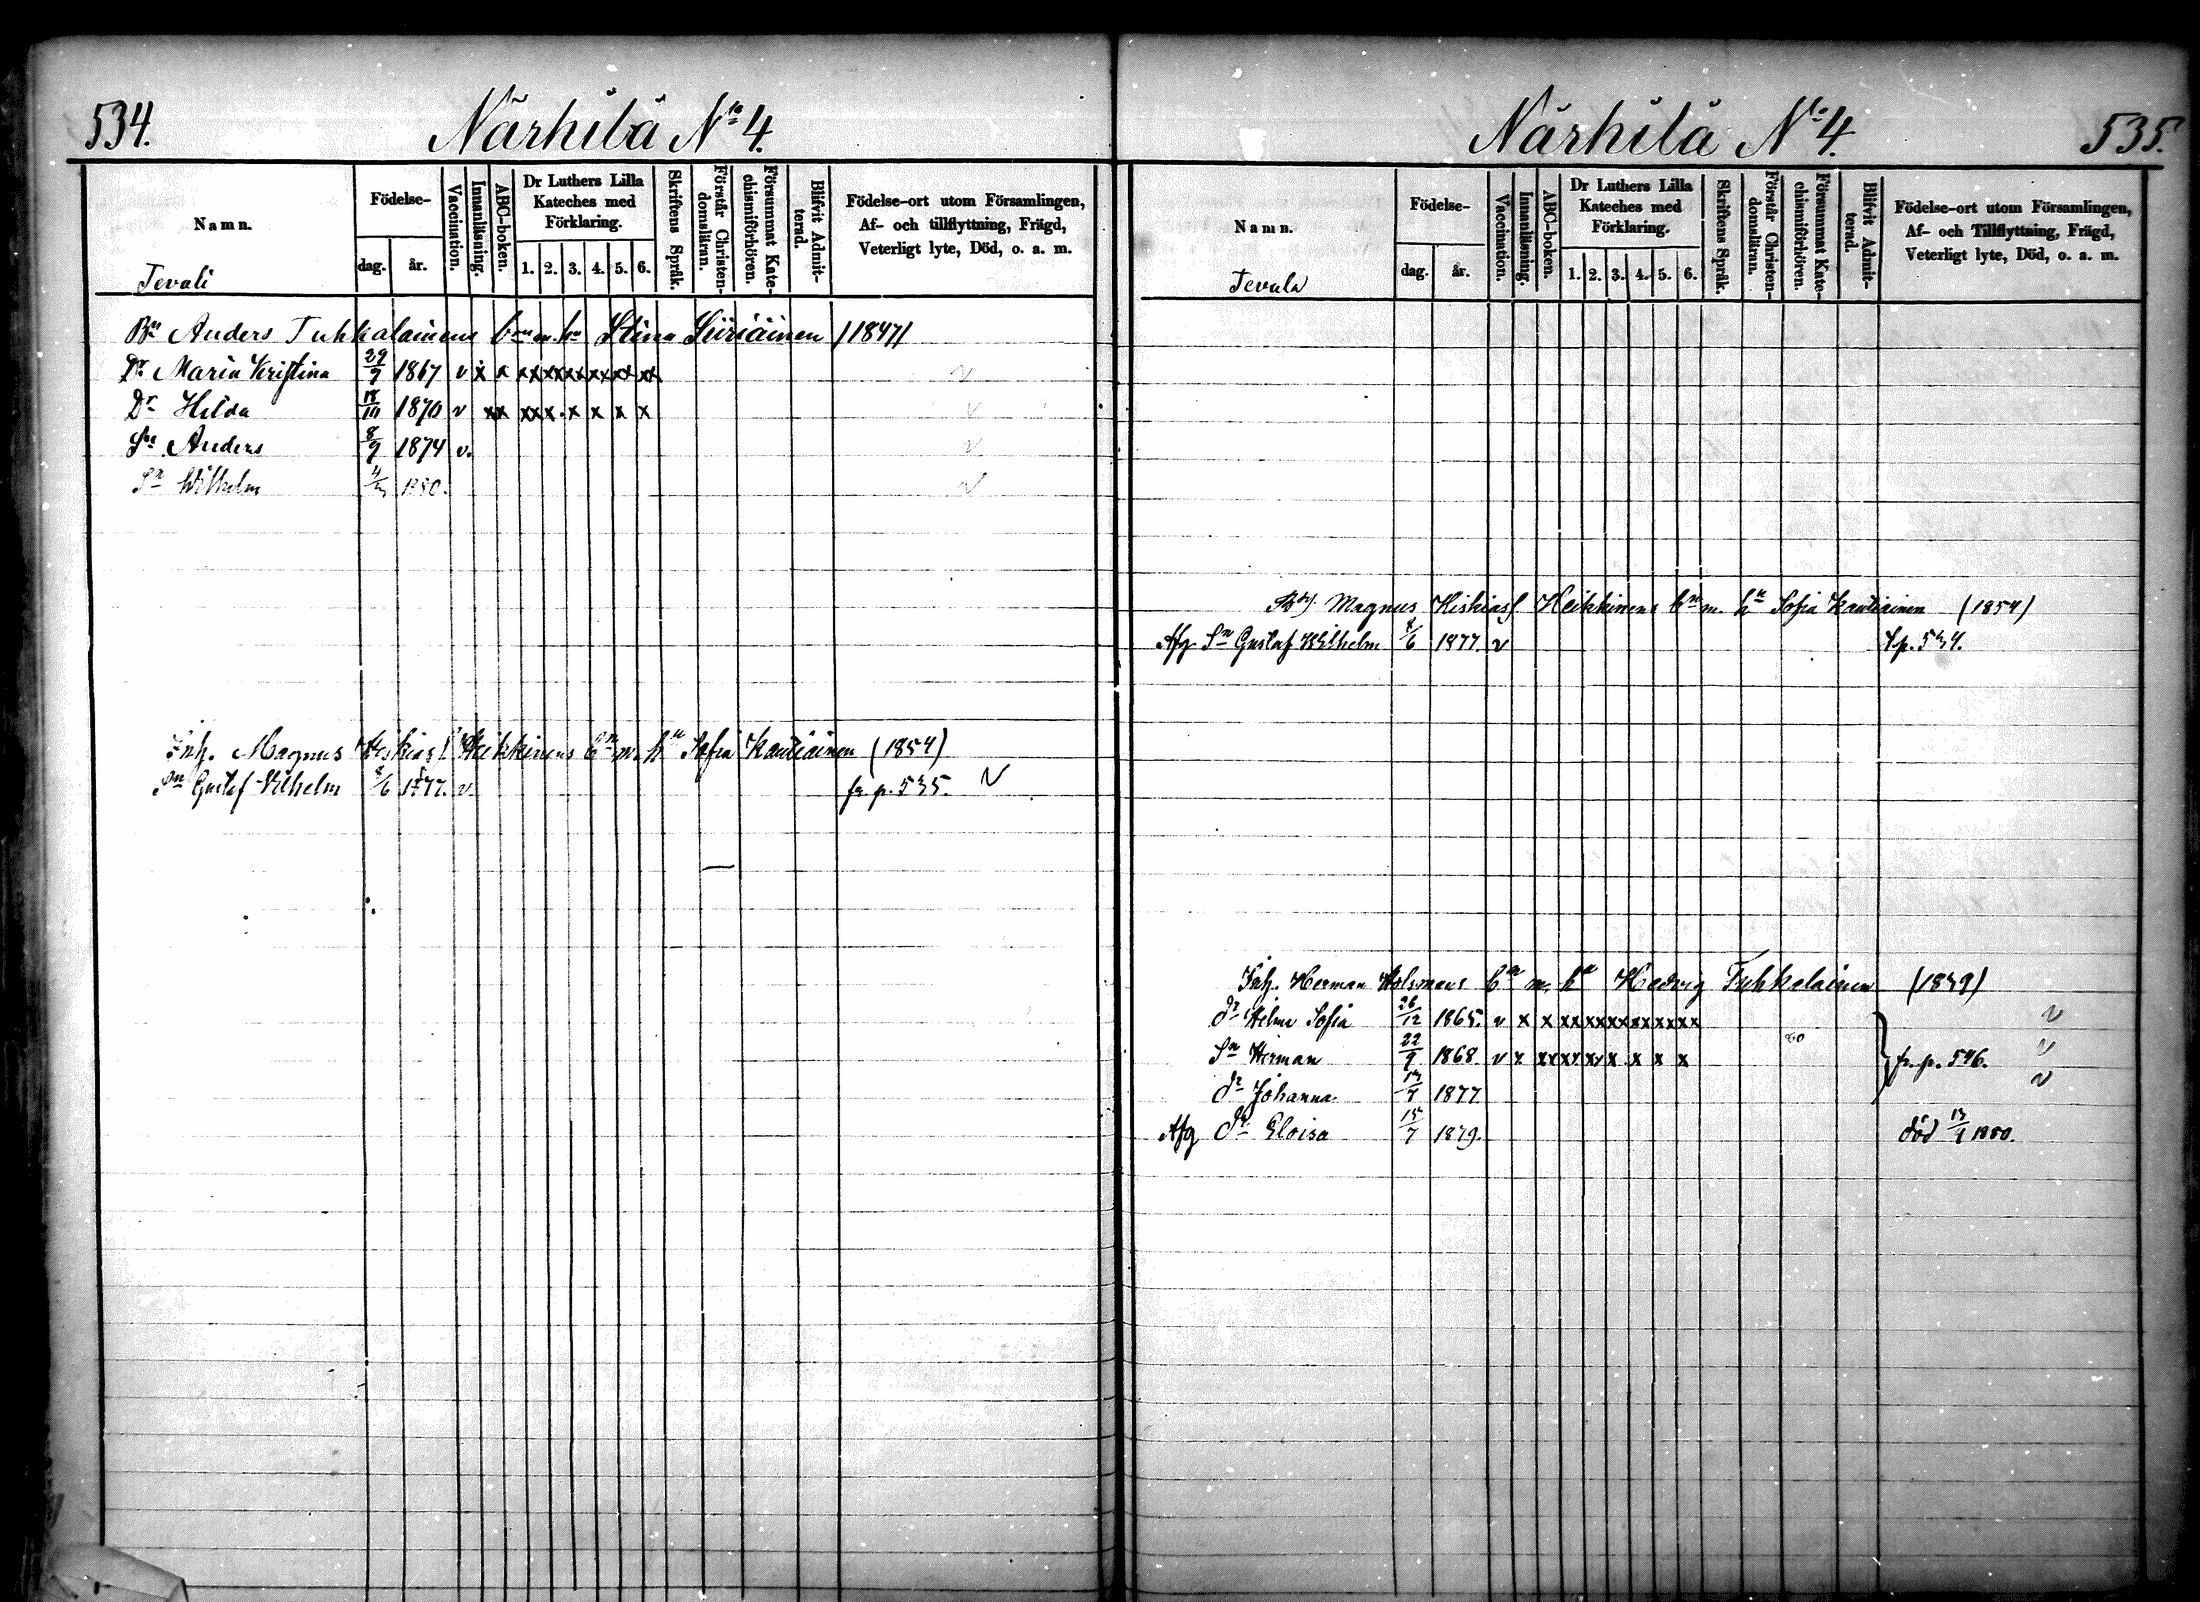 534.
Närhilä No 4.
Namn.
Födelse-
dag.
år.
Vaccination.
Innanläsning.
ABC-boken.
Dr Luthers Lilla
Kateches med
Förklaring.
1. 2. 3. 4. 5. 6.
Skriftens Språk.
Förstår Christen-
domsläran.
Försummat Kate-
chismiförhören.
Blifvit Admit-
terad.
Födelse-ort utom Församlingen,
Af- och tillflyttning, Frägd,
Veterligt lyte, Död, o. a. m.
Tevali
Bn Anders Tuhkalainens bn m. hu Stina Siiriäinen (1847)
Dr Maria Kristina 29/9 1867 v x x xx xx xx xx xx xx
Dr Hilda 18/10 1870 v xx xx x x x x x v
Sn Anders 8/9 1874 v. v
Sn Wilhelm 1880. v
Inh. Magnus Heskias Heikkinens bn m. hu Sofia Kautiainen (1854)
Sn Gustaf Vilhelm 8/6 1877. v. fr. p. 535. v
Närhilä No 4.
535.
Namn.
Födelse-
dag.
år.
Vaccination.
Innanläsning.
ABC-boken.
Dr Luthers Lilla
Kateches med
Förklaring.
1. 2. 3. 4. 5. 6.
Skriftens Språk.
Förstår Christen-
domsläran.
Försummat Kate-
chismiförhören.
Blifvit Admit-
terad.
Födelse-ort utom Församlingen,
Af- och Tillflyttning, Frägd,
Veterligt lyte, Död, o. a. m.
Tevala
Magnus Heikkinens bn m. hu Sofia Kautiainen (1854)
Afg Sn Gustaf Wilhelm 8/6 1877. v t. p. 534.
Inh. Herman Holsmens bn m. hu Hedvig Tuhkalainen (1839)
dr Hilma Sofia 26/12 1865. v x x xx xx xx xx xx xx v
Sn Herman 22/9 1868. v x xx xx xx x x x x 80 fr. p. 546. v
dr Johanna 1877 v
Afg dr Eloisa 15/7 1879. död 1880.